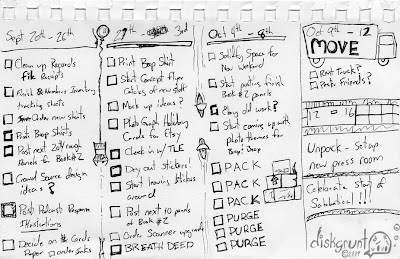 Sept 20th - 26th
Clean up Records
File Receipts
Inventory
tracking shots
Order new shirts
Post Bop Shirts
Post next 20
Panels for Book #2
Crowd Source design
ideas?
Post Podcast Response
Illustrations
Decide on # Cards
Paper order inks
27th - 3rd
Print Bop Shirt
Start Concept Flyer
Catalog of new stuff
Mock up ideas?
Photo Graph Holiday
Cards for Etsy
Check in w/ TLE
Dry out stickers!
Start leaving stickers
around
Post next 10 panels
of Book #2
Order Scanner upgrade
BREATH DEEP
Oct 4th - 8th
Solidify Space for
New
Start posting finish
Book #2 panels
Etsy old work?
Start coming up with
photo themes for
Bop! Drop
PACK
PACK
PACK
PURGE
PURGE
PURGE
Oct 9th - 12
MOVE
Rent Truck?
Friends?
12 - 16
Unpack - Setup
new press room
Celebrate Start of
Sabbatical!!!
diskgrunt